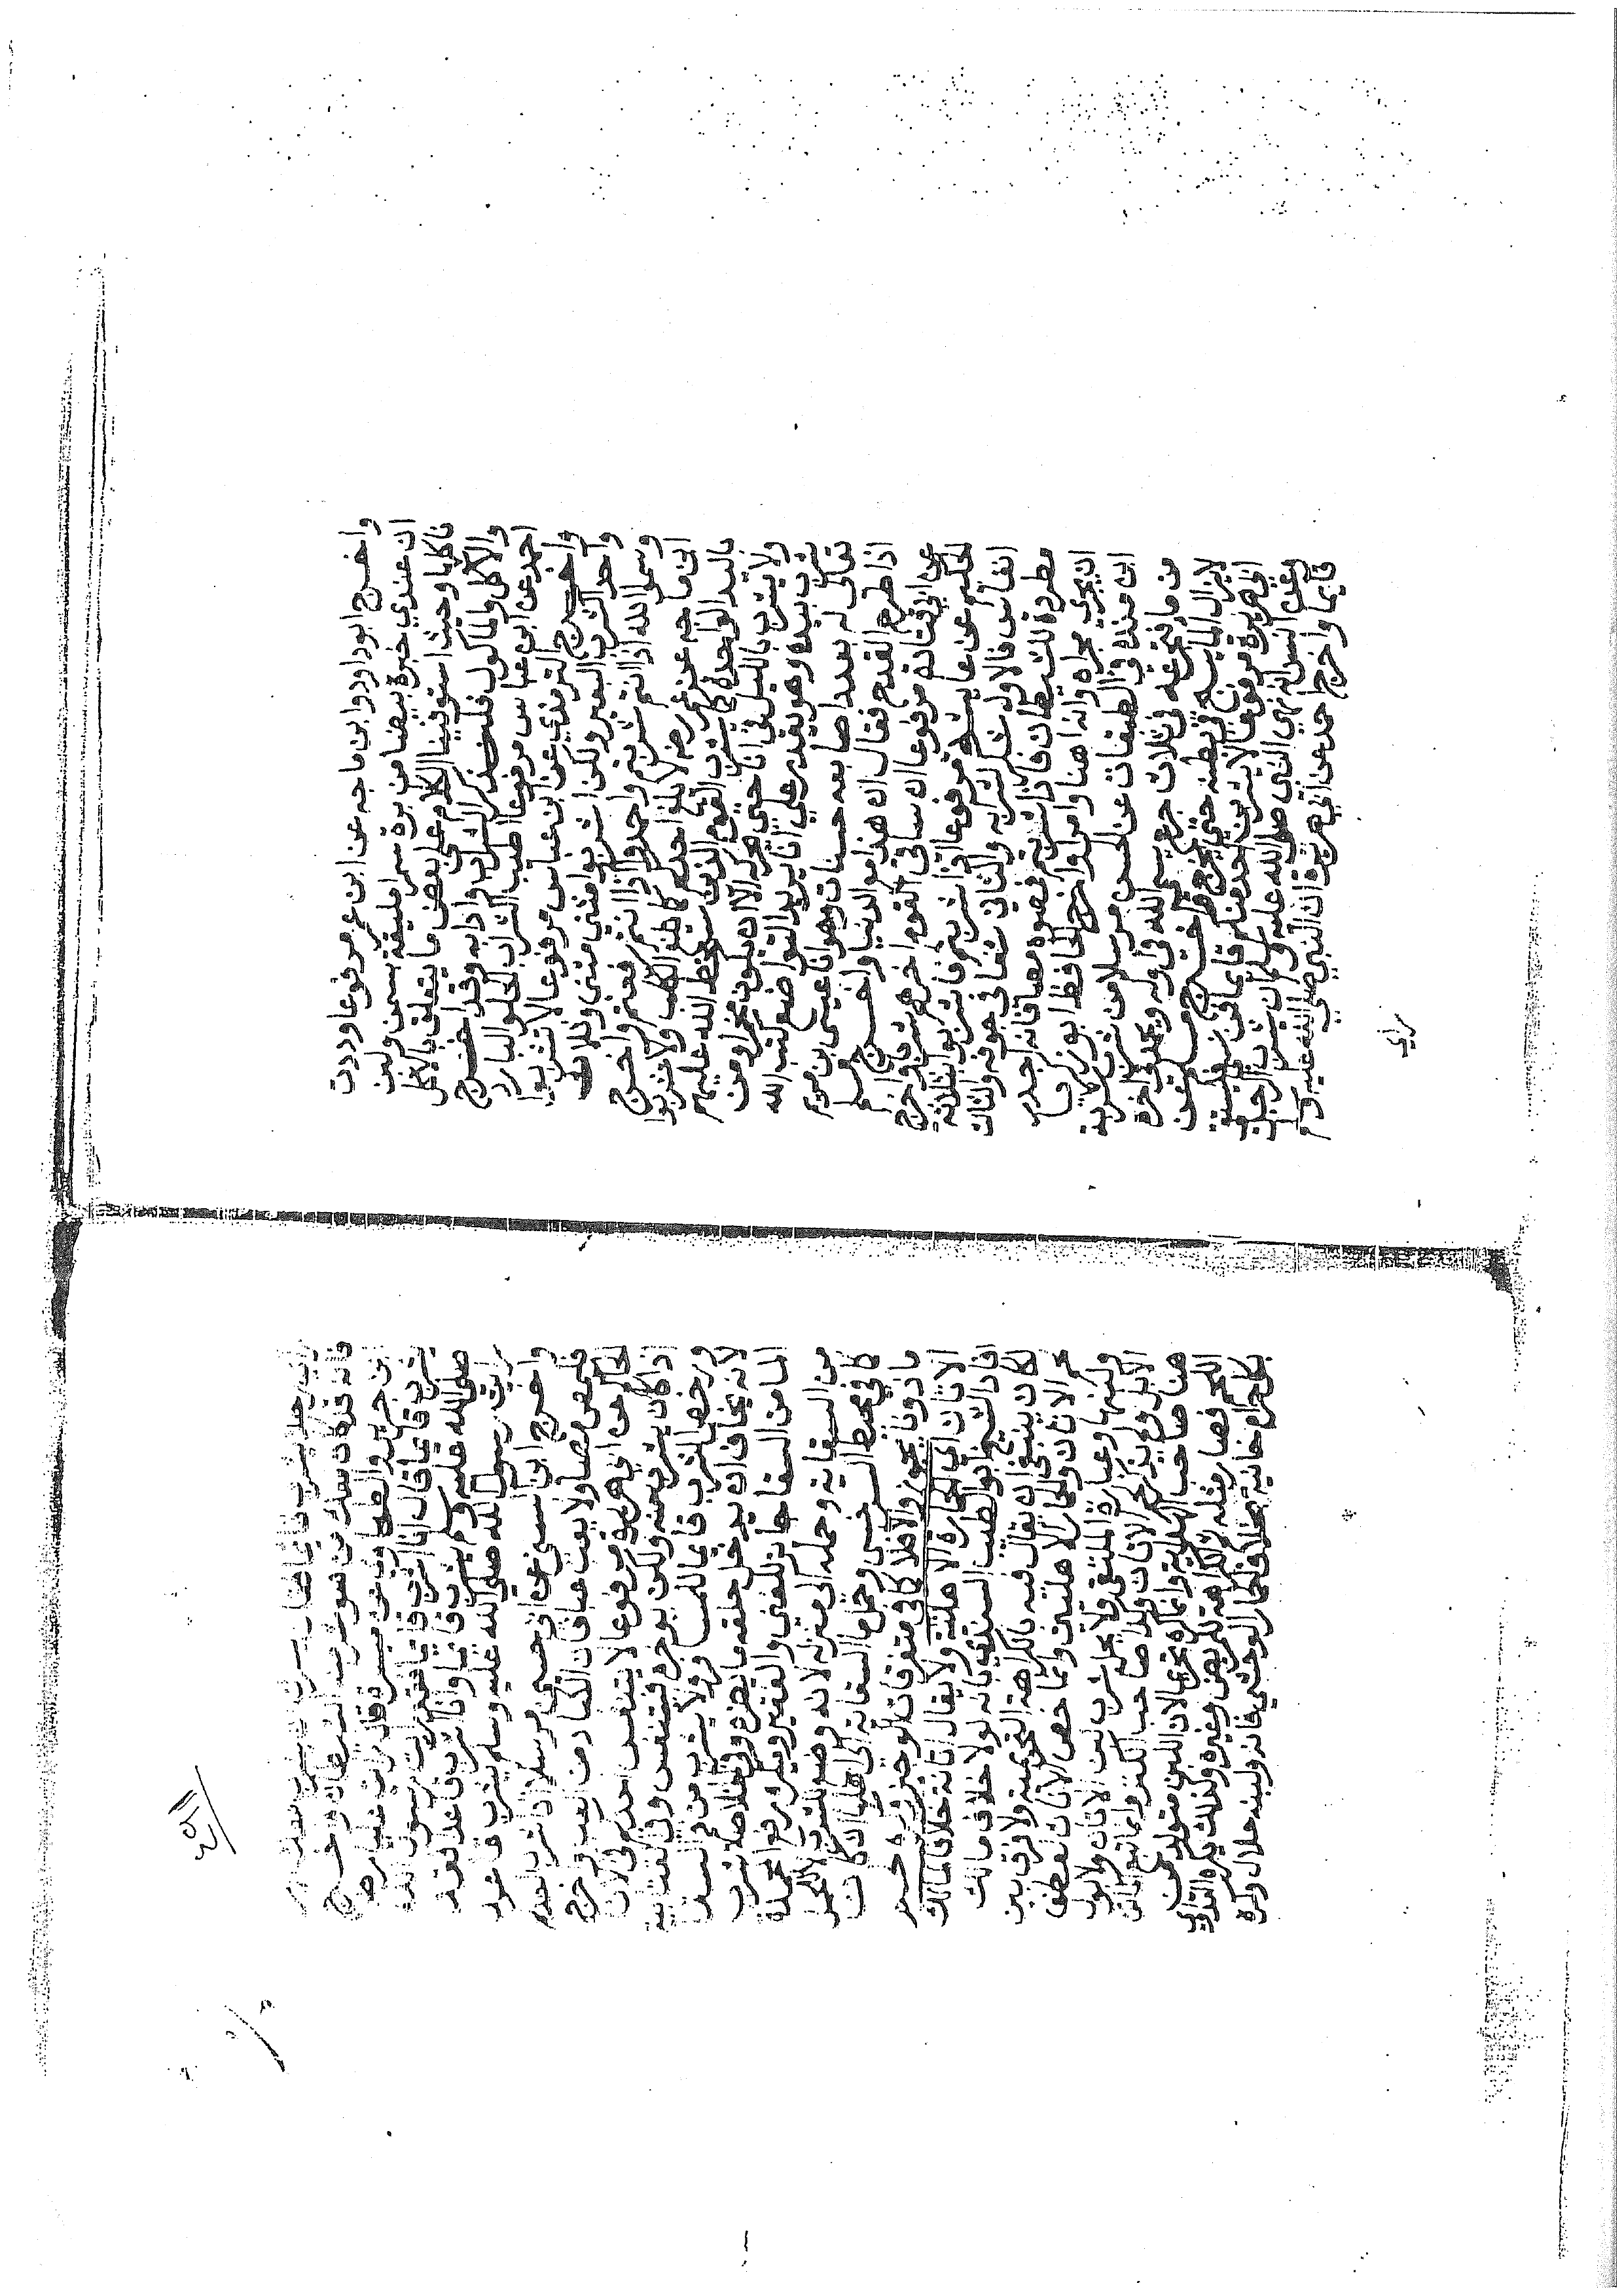 واخرج ابو داود وابن ماجه عن ابن عمر مرفوعا وددت
ان عندي خبزة بيضا من برة سمرا ملبقة بسمن ولبن
فاكلها وحيث استوفينا الكلام على بعض ما يتعلق بالاكل
والاكل والماكول فلنذكر الشراب وادابه وقد اخرج
احمد عن ابن عباس مرفوعا اطيب الشراب الحلو البارد
واخرج الترمذي عن ابن عباس مرفوعا لا تشربوا
واحدا كشرب البعير ولكن اشربوا مثنى مثنى وثلاث
وسموا الله اذا انتم شربتم واحمدوا اذا انتم رفعتم واخرج
ابن ماجه عن عمر رضه لا يلغ احدكم كما يلغ الكلب ولا يشربوا
باليد الواحدة كما يشرب القوم الذين سخط الله عليهم
ولا يشرب بالليل في انا حتى يحركه الا ان يكون مخمرا ومن
شرب بيده وهو يقدر على انا يريد التواضع كتب الله
تعالى له بعدد اصابعه حسنات وهو انا عيسى بن مريم
اذ اطرح القدح فقال اف هذا مع الدنيا واخرج مسلم
عن ابي قتادة مرفوعا ان ساقي القوم اخرهم شربا واخرج
الحكيم عن عايشة مرفوعا اذا شربتم فاشربوا بثلاثة
انفاس فالاول شكر لشربه والثاني شفا في جوفه والثالث
مطردة للشيطان فاذا شربتم فمصوه مصا فانه اجدر
ان يجري مجراه وانه اهنا وامرا واخرج الحافظ ابو زكريا
ابن منده في الطبقات عن الحسن مرسلا من شرب شربة
من ما فتجرعه في ثلاث جرع يسمي الله في اوله ويحمد في اخره
لا يزال الما يسبح في بطنه حتى يخرج واخرج مسلم عن
ابي هريرة مرفوعا لا يشربن احد منكم قايما فمن نسي فليستقئ
وعن انس انه نهى النبي صلى الله عليه وسلم ان يشرب الرجل
قايما واخرج احمد عن ابي هريرة ان النبي صلى الله عليه وسلم
راي
راى رجلا يشرب قايما فقال
فانه قد كان معك من هو شر منه الشيطان واخرج
ابن جرير والطحاوي عن ميسرة قال رايت عليا رضه
يشرب قايما فقال ان اشرب قايما فقد رايت رسول الله
صلى الله عليه وسلم يشرب قايما وان اشرب قاعدا فقد
رايت رسول الله صلى الله عليه وسلم يشرب قاعدا
واخرج ابن السني عن ابن ابي حسين مرسلا اذا شرب احدكم
فليمص مصا ولا يعب عبا فان الكباد من العب واخرج
الحاكم عن ابي هريرة مرفوعا لا يتنفس احدكم في الانا
اذا كان يشرب منه ولكن يوخره فيتنفس وفي
ورخص الشرب قايما للمسافر ولا يشرب من فم السقا
لانه يخاف ان يدخل حلقه ما يضره وفي الخلاصة شرب
الما من السقا جايز للغني والفقير ويكره رفع الجمدة
من السقاية وحمله الى منزله لانه وضع للشرب لا للحمل
كما في محيط السرخسي وحمل ما السقاية الى اهله ان كان
ماذونا يجوز والا فلا كما في متفرقات الوجيز
الاتان اي الحمارة الاهلية ولا يقال اتانة خلافا لمالك
فاد الشيخ ابو الطيب السندي بانه لولا خلاف مالك
لكان ينبغي ان يقال فيه بالكراهة التحريمية ولا فرق بين
لحم الاتان والحمار الاهليين وانما خص الاتان لعطف
ولبنها وعبارة الملتقى ولا يحل شرب لبن الاتان ولا بول
الابل ولم يذكر لحم الاتان ولا صاحب الكنز وانما تبع الماتن
هنا صاحب الهداية وانما كره تحريما لان اللبن متولد من
اللحم فصار مثله في الكراهة لمريض وغيره ولذلك يكره التداوي
بكل حرام خانيه بخلاف الحمار الوحشي فانه ولبنه حلال وكره